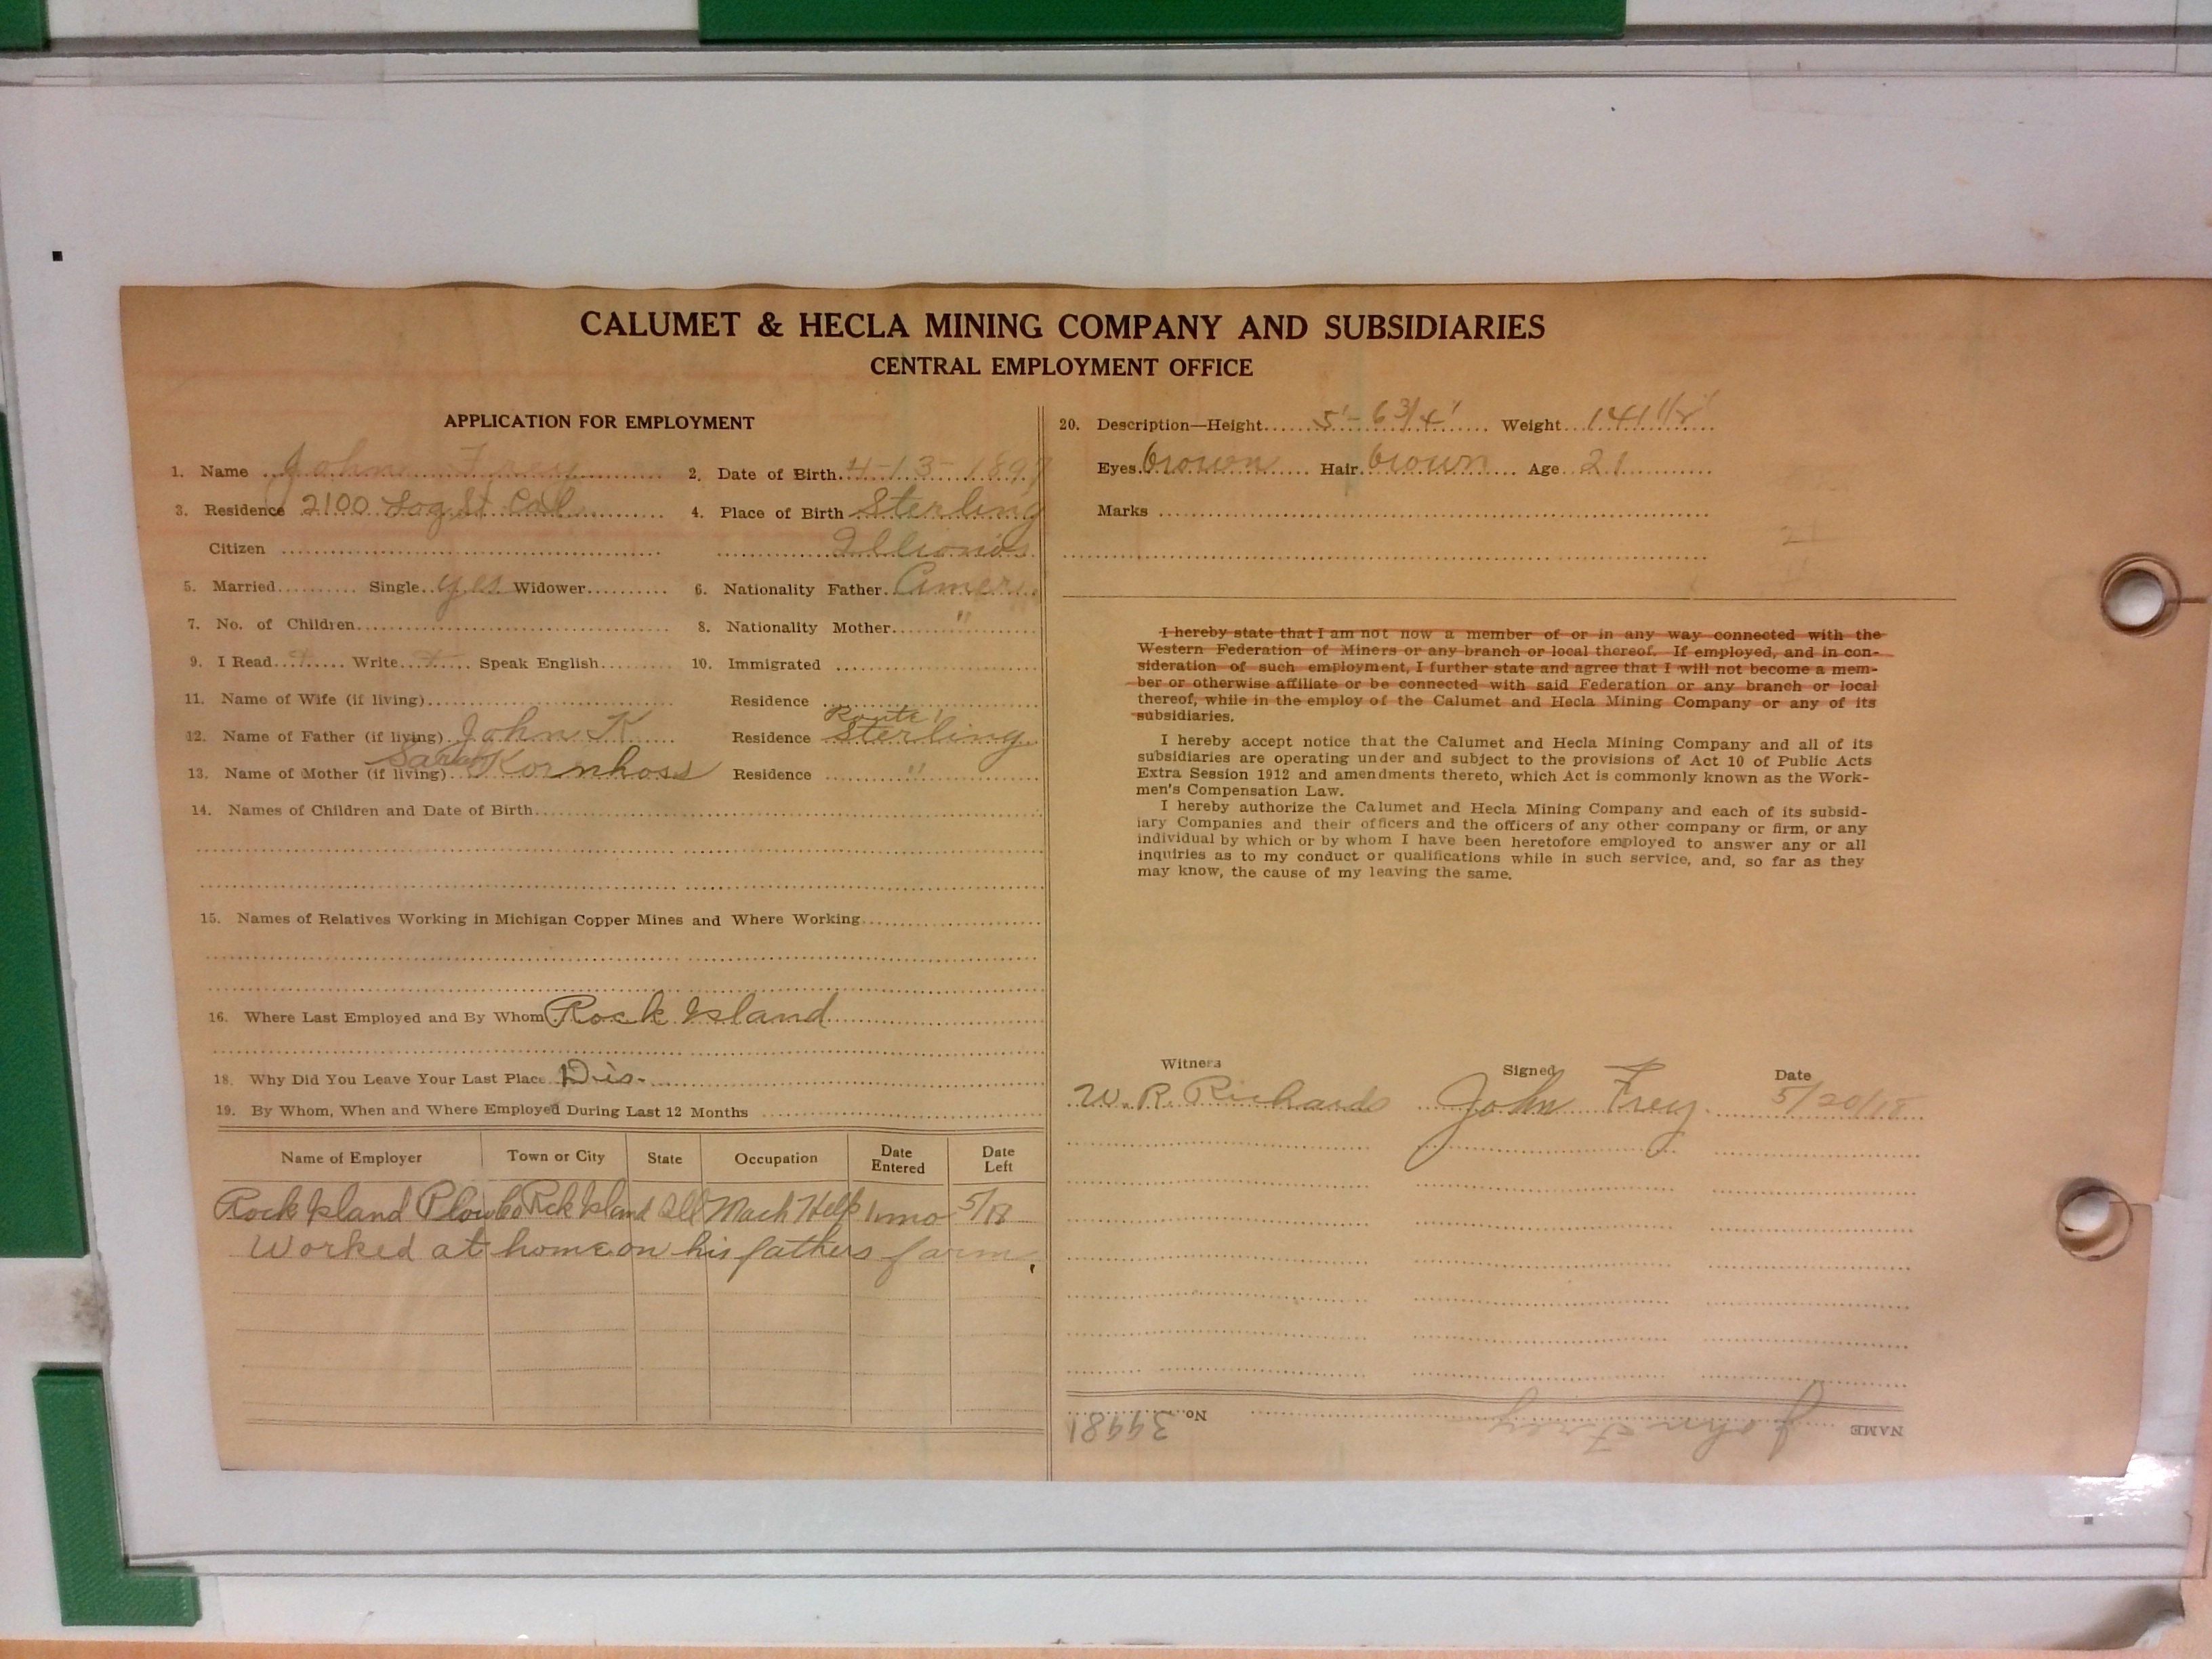 CALUMET & HECLA MINING COMPANY AND SUBSIDIARIES
CENTRAL EMPLOYMENT OFFICE
APPLICATION FOR EMPLOYMENT
1. Name John Frey 2. Date of Birth 4-13-1897
3. Residence 2100 Log St. Cal. 4. Place of Birth Sterling
Citizen Illionois
5. Married Single yes Widower 6. Nationality Father Amer.
7. No. of Children 8. Nationality Mother "
9. I Read + Write + Speak English 10. Immigrated
11. Name of Wife (if living) Residence
Route 1
12. Name of Father (if living) John K Residence Sterling
13. Name of Mother (if living) Sarah Kornhoss Residence "
14. Names of Children and Date of Birth
15. Names of Relatives Working in Michigan Copper Mines and Where Working
16. Where Last Employed and By Whom Rock Island
18. Why Did You Leave Your Last Place Dis.
19. By Whom, When and Where Employed During Last 12 Months
Name of Employer Town or City State Occupation Date Entered Date Left
Rock Island Plow Co Rck Island Ill Mach Help 1 mo 5/18
Worked at home on his fathers farm.
20. Description—Height 5'-6 3/4" Weight 141 1/2
Eyes brown Hair brown Age 21
Marks
I hereby state that I am not now a member of or in any way connected with the
Western Federation of Miners or any branch or local thereof. If employed, and in con-
sideration of such employment, I further state and agree that I will not become a mem-
ber or otherwise affiliate or be connected with said Federation or any branch or local
thereof, while in the employ of the Calumet and Hecla Mining Company or any of its
subsidiaries.
I hereby accept notice that the Calumet and Hecla Mining Company and all of its
subsidiaries are operating under and subject to the provisions of Act 10 of Public Acts
Extra Session 1912 and amendments thereto, which Act is commonly known as the Work-
men's Compensation Law.
I hereby authorize the Calumet and Hecla Mining Company and each of its subsid-
iary Companies and their officers and the officers of any other company or firm, or any
individual by which or by whom I have been heretofore employed to answer any or all
inquiries as to my conduct or qualifications while in such service, and, so far as they
may know, the cause of my leaving the same.
Witness Signed Date
W. R. Richards John Frey 5/20/18
NAME John Frey No. 39981